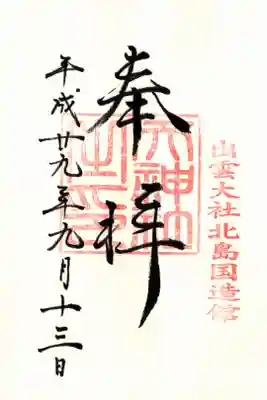 出雲大社北島国造館
奉拝
平成廿九年九月十三日